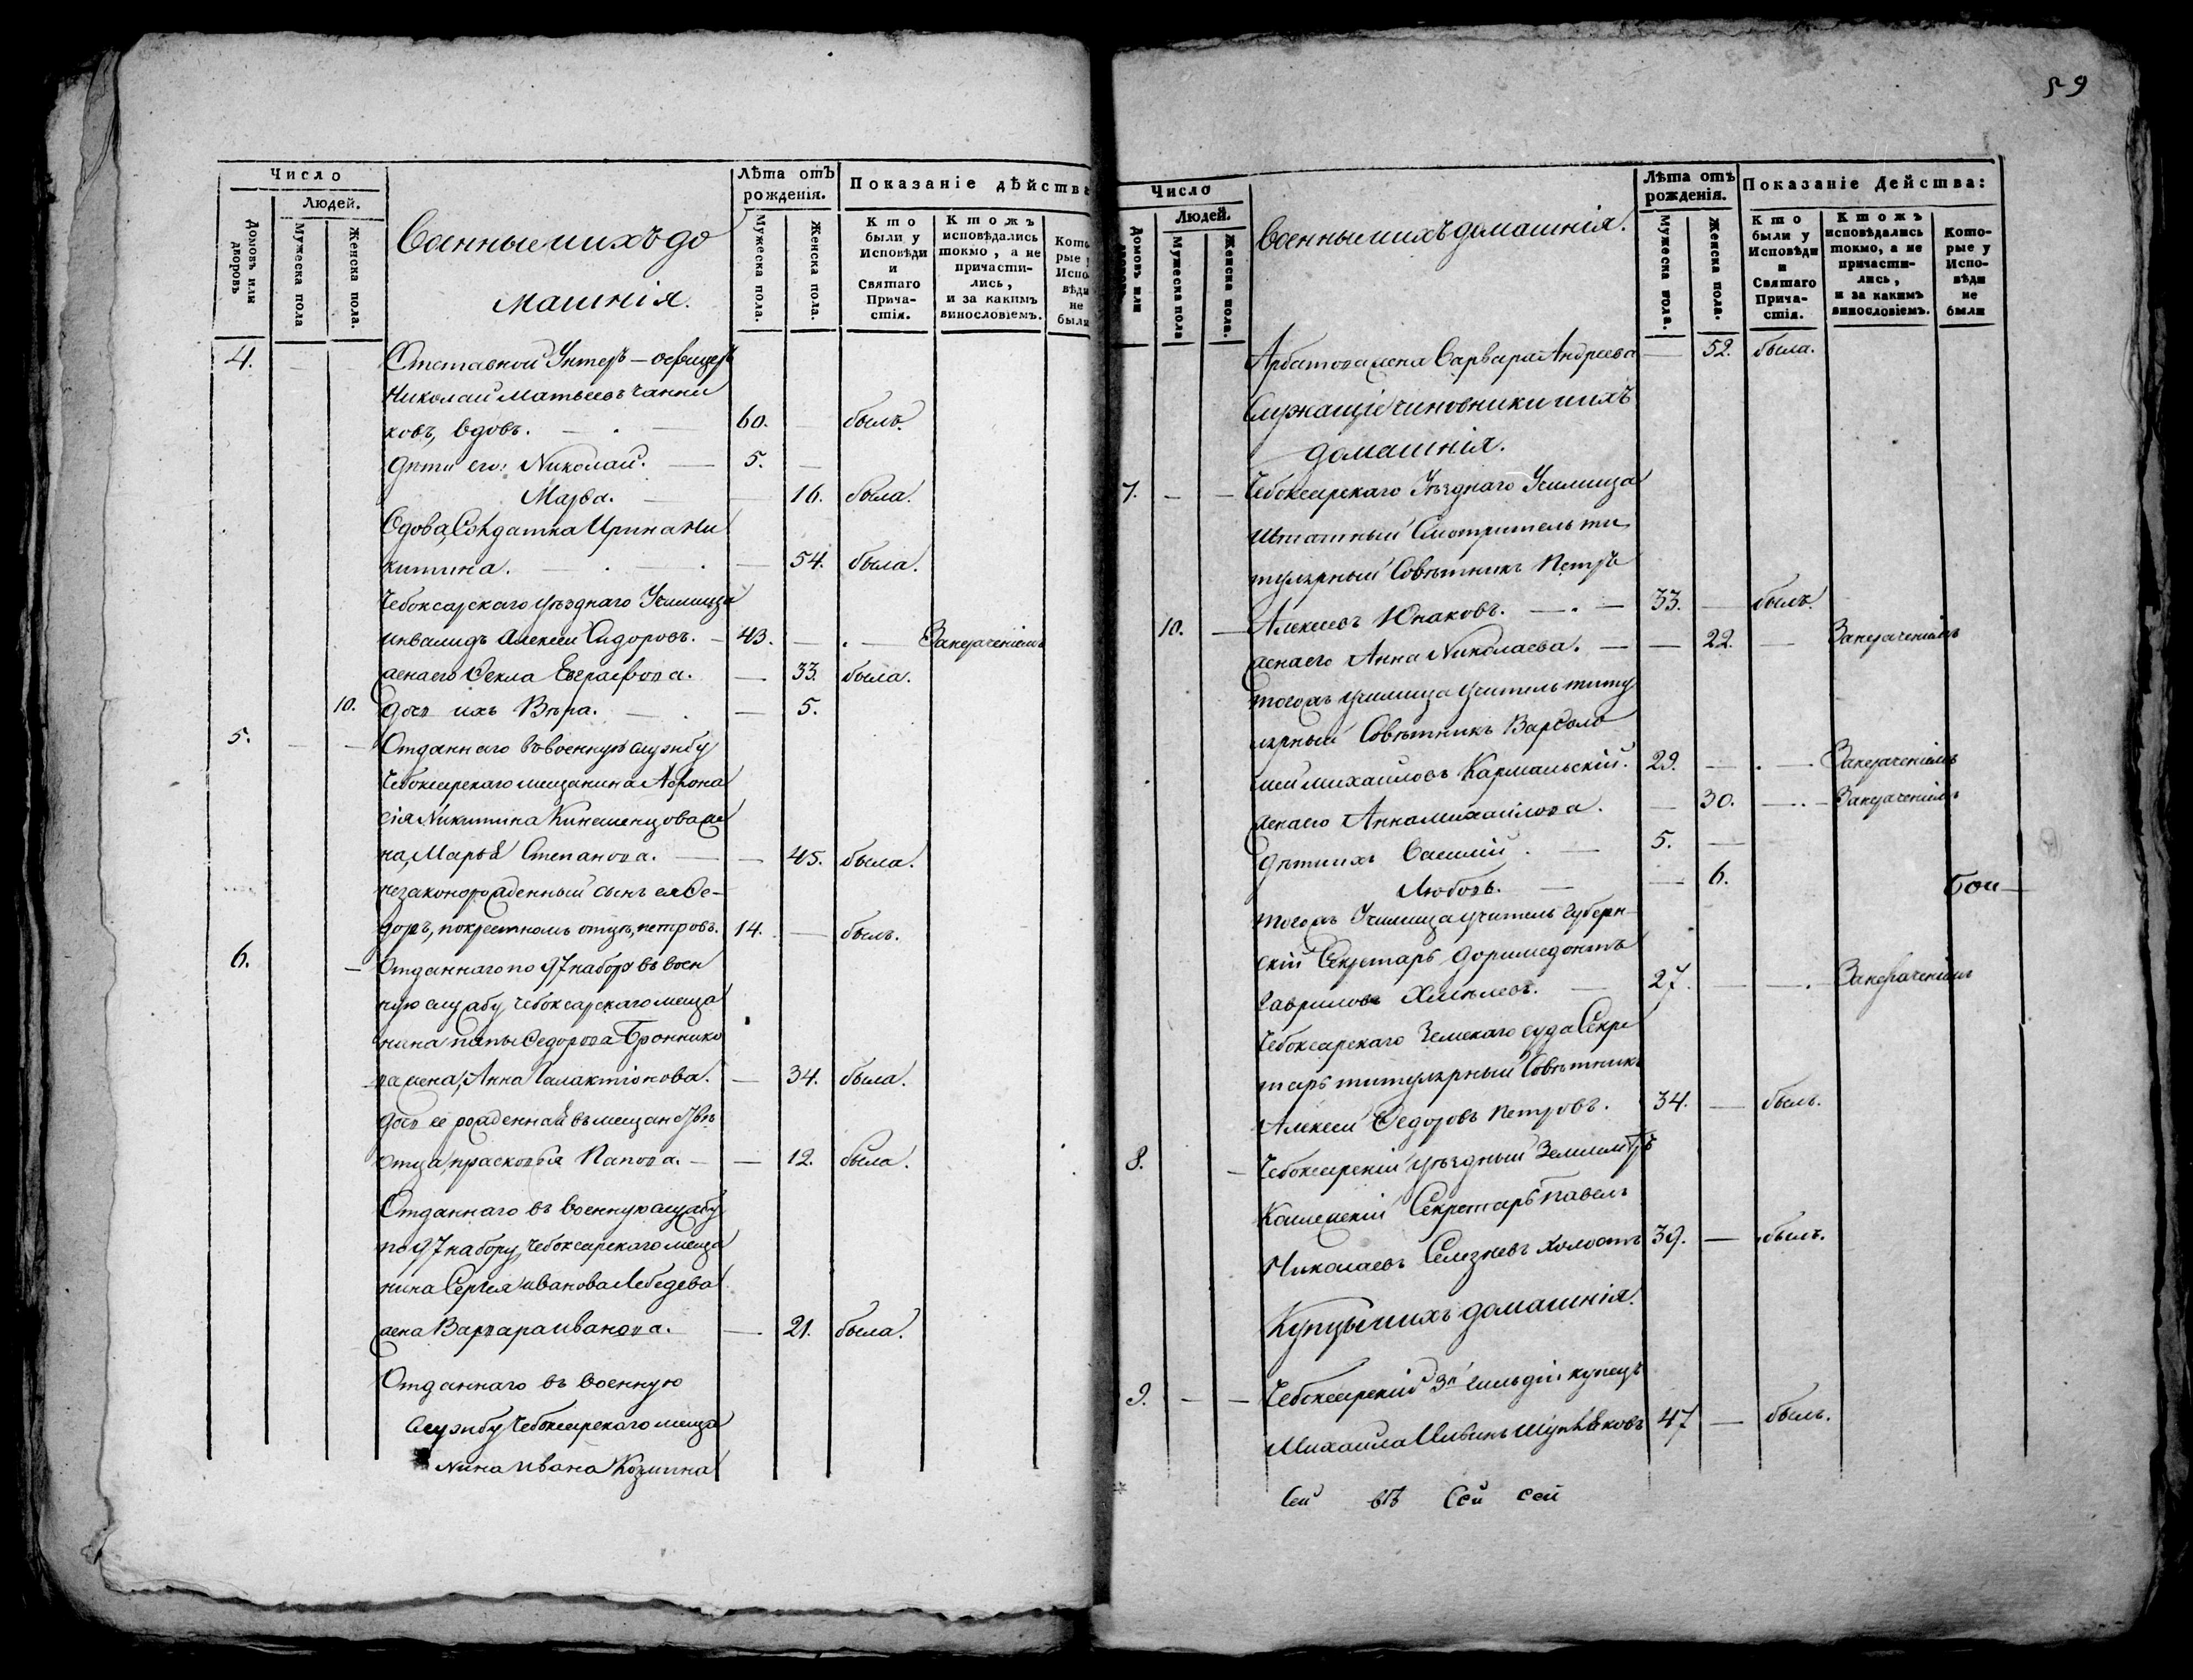 Число
Людей.
Домовъ или дворовъ
Мужеска пола
Женска пола.
Военные и ихъ до
машнія.
Лѣта отъ рожденія.
Мужеска пола.
Женска пола.
Показаніе дѣйства
Кто были у Исповѣди и Святаго Причастія.
Ктожъ исповѣдались токмо, а не причастились, и за какимъ винословіемъ.
Которые у Исповѣди не были
4. Отставной Унтеръ-офицеръ
Николай Матвеевъ Чанни
ковъ, вдовъ. 60. былъ.
Дѣти его: Николай. 5.
Марва. 16. была.
Вдова, Солдатка Ирина Ни
китина. 54. была.
Чебоксарскаго уѣзднаго Училища
инвалидъ Алексей Сидоровъ. 43. Занерачениемъ
жена его Фекла Евграфова. 33. была.
10. дочь ихъ Вѣра. 5.
5. Отданнаго въ военную службу
Чебоксарскаго мещанина Афона
сія Никитина Кинешенцова же
на, Марья Степанова. 45. была.
незаконорожденный сынъ ея Фе-
доръ, по крестномъ отцѣ, петровъ. 14. былъ.
6. Отданнаго по 97 набору въ воен
ную службу, Чебоксарскаго меща
нина Федорова Бронник
ва жена, Анна Галактіонова. 34. была.
дочь ее рожденная въ мещанствѣ
отца, прасковья 12. была.
Отданнаго въ военную службу
по 97 набору, Чебоксарскаго меща
нина Сергея Иванова Лебедева
жена Варвара Иванова. 21. была.
Отданнаго въ военную
службу Чебоксарскаго меща
нина Ивана Козмина
59
Число
Людей.
Домовъ или
Мужеска пола
Женска пола.
Военные и ихъ домашнія.
Лѣта отъ рожденія.
Мужеска пола.
Женска пола.
Показаніе Действа:
Кто были у Исповѣди и Святаго Причастія.
Ктожъ исповѣдались токмо, а не причастились, и за какимъ винословіемъ.
Которые у Исповѣди не были
Арбатова жена Варвара Андреева 52. была.
Служащіе чиновники и ихъ
домашнія.
7. Чебоксарскаго Уѣзднаго Училища
штатный Смотритель ти
тулярный Совѣтникъ Петръ
10. Алексеевъ Юнаковъ. 33. былъ.
жена его Анна Николаева. 22. Занерачениемъ
тогожъ училища учитель титу
лярный Совѣтникъ Варфоло
мей Михайловъ Кармальскій. 29. Занерачениемъ
жена его Анна Михайлова. 30. Занерачениемъ
дѣти ихъ Василій. 5.
Любовь. 6.
тогожъ Училища учитель Губерн-
скій Секретарь Доримедонтъ
Гавриловъ Хмѣлевъ. 27. Занерачениемъ
Чебоксарскаго Земскаго суда Секре
тарь титулярный Совѣтникъ
Алексей Федоровъ Петровъ. 34. былъ.
8. Чебоксарскій уѣздный Землемѣръ
Коллежскій Секретарь Павелъ
Николаевъ Селезневъ холостъ 39. былъ.
Купцы и ихъ домашнія.
9. Чебоксарскій 3й гильдіи купецъ
Михайла Ильинъ Шупляковъ 47 былъ.
Сей въ Сей сей